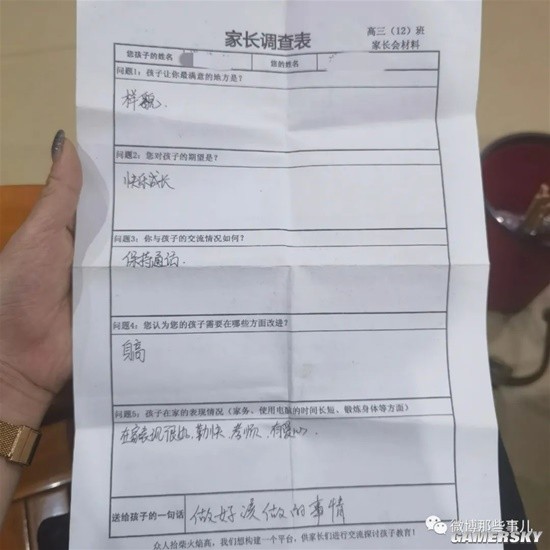 高三（12）班
家长会材料
家长调查表
您孩子的姓名 您的姓名
问题1：孩子让你最满意的地方是？
样貌.
问题2：您对孩子的期望是？
快乐成长
问题3：你与孩子的交流情况如何？
保持通话.
问题4：您认为您的孩子需要在哪些方面改进？
身高
问题5：孩子在家的表现情况（家务、使用电脑的时间长短、锻炼身体等方面）
在家表现很好，勤快，孝顺，有爱心.
送给孩子的一句话 做好该做的事情
众人拾柴火焰高，我们想构建一个平台，供家长们进行交流探讨孩子教育！
微博那些事儿
GAMERSKY